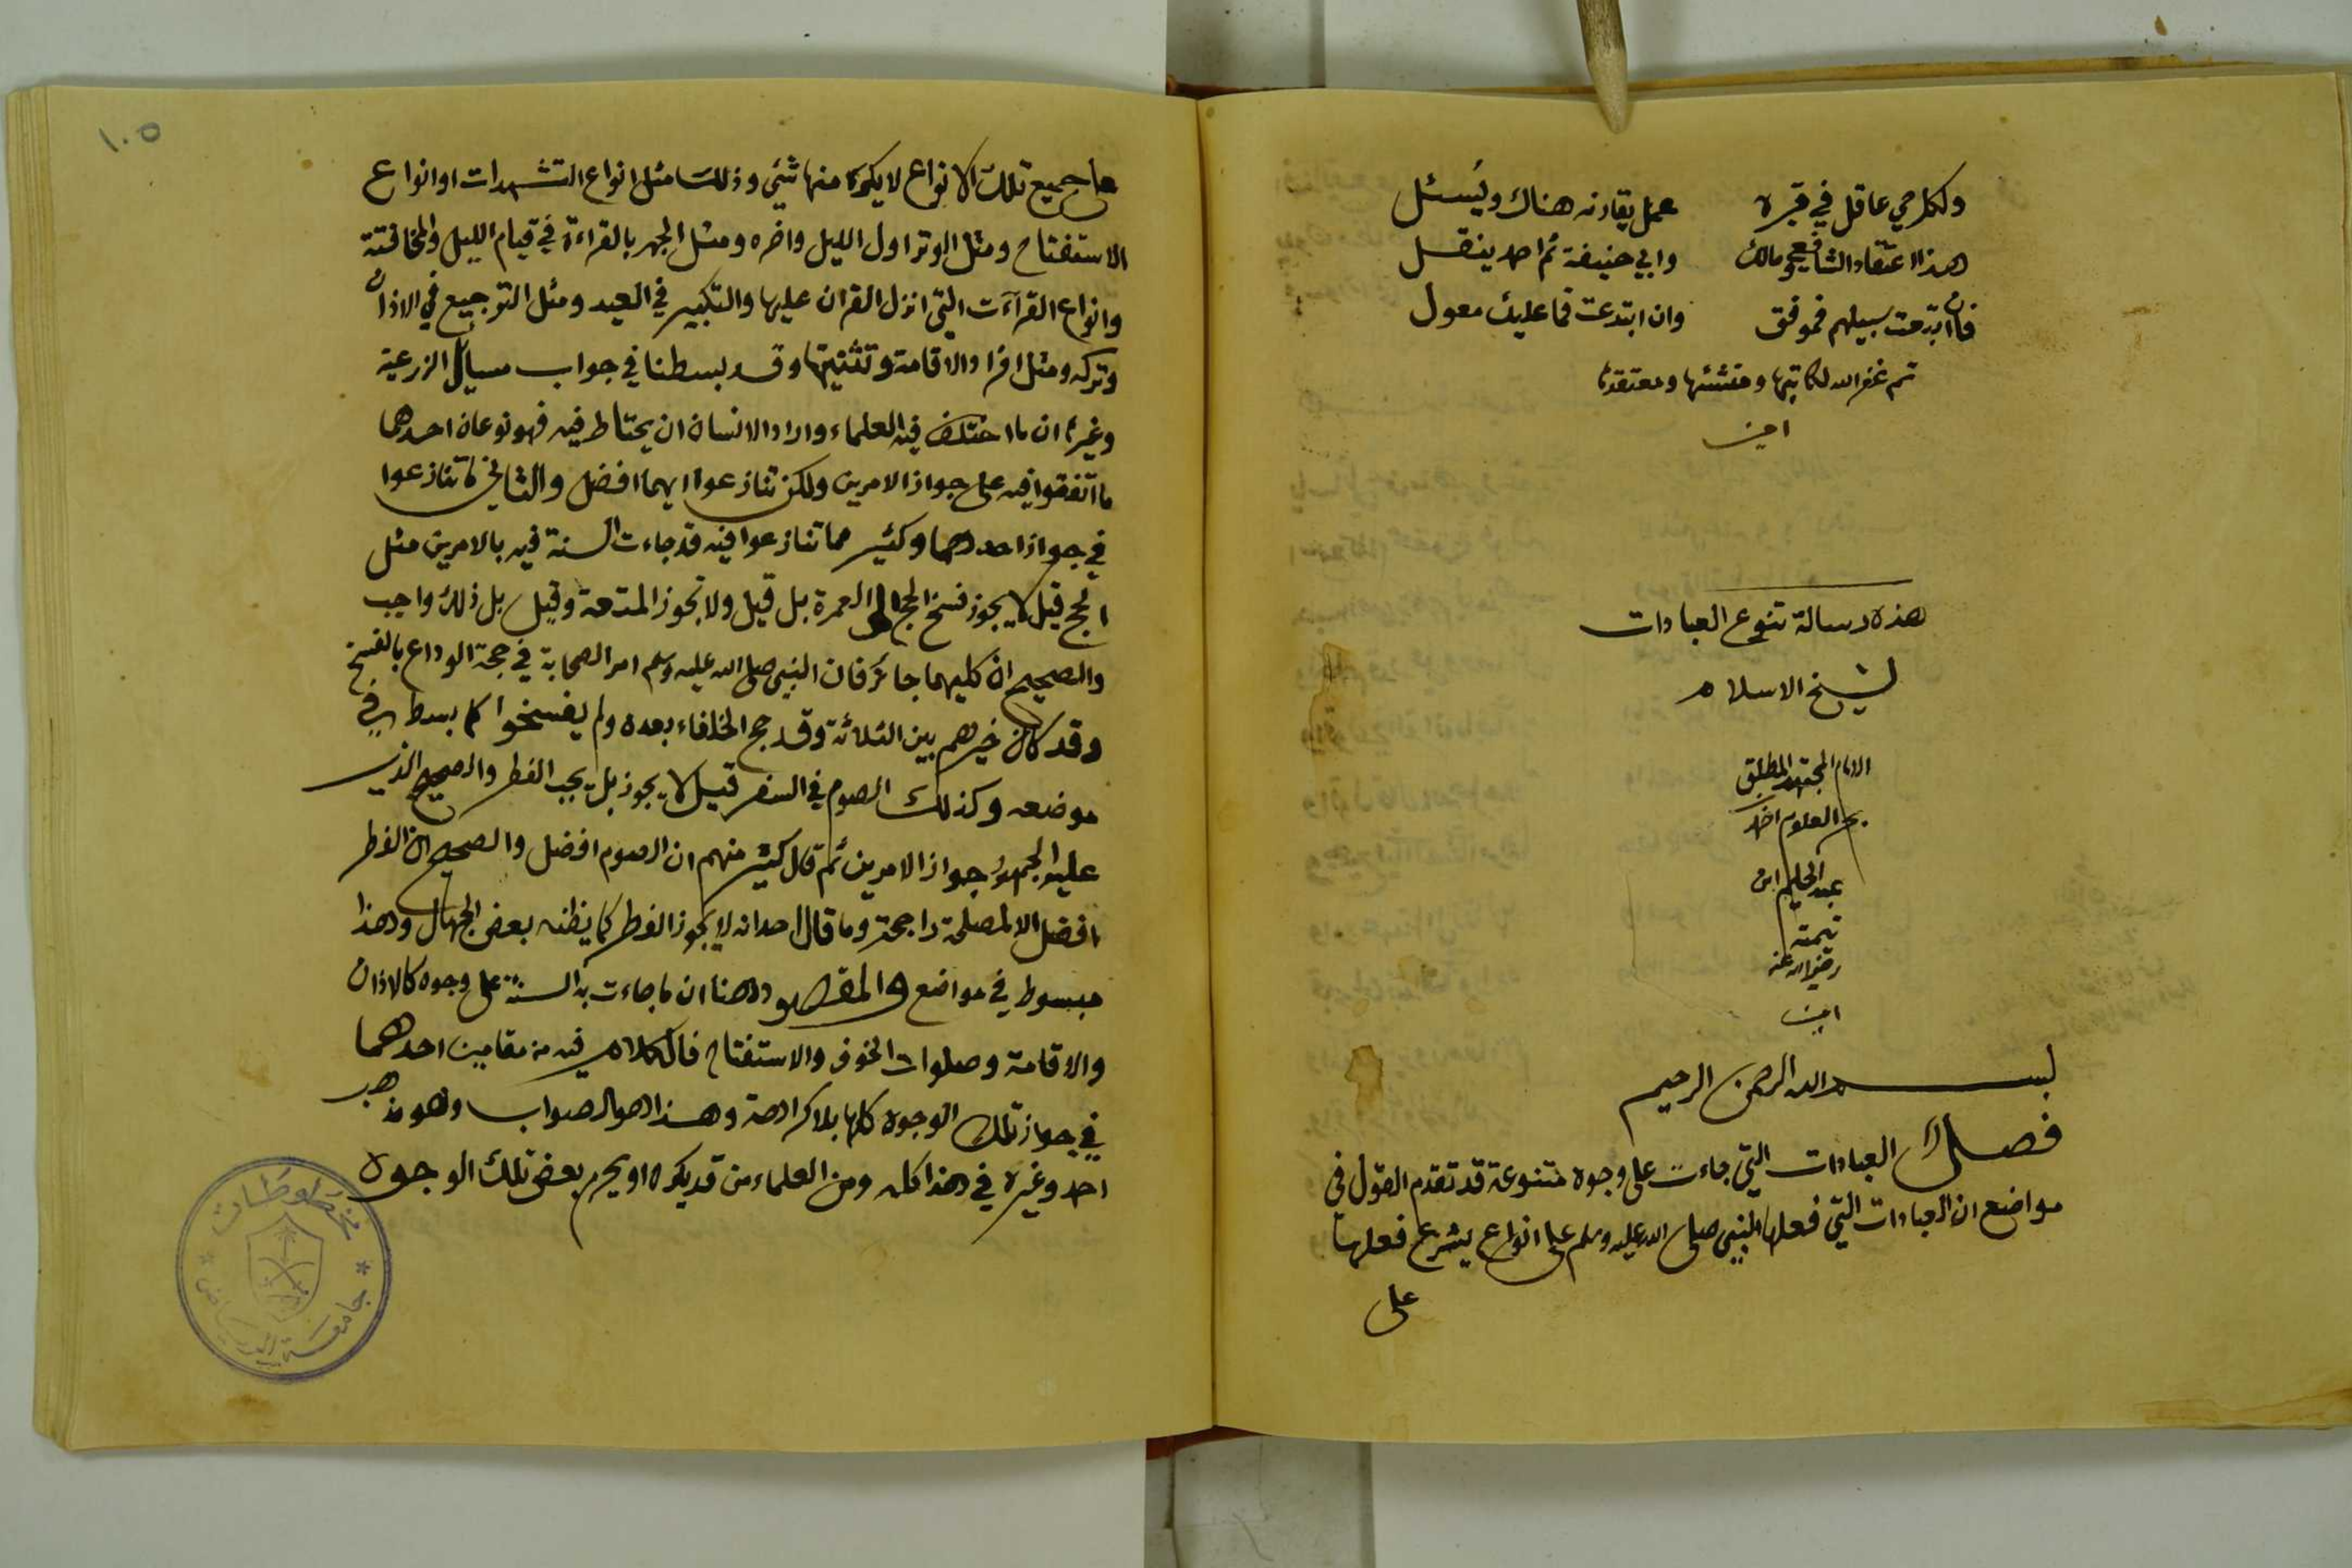 ولكل حي عاقل في قبره عمل يقارنه هناك ويُسئل
هذا اعتقاد الشافعي ومالك وابي حنيفة ثم احمد ينقل
فان اتبعت سبيلهم فموفق وان ابتدعت فما عليك معول
تم غفر الله لكاتبها ومنشئها ومعتقدها
امين
هذه رسالة تنوع العبادات
لشيخ الاسلام
الامام المجتهد المطلق
بحر العلوم احمد
عبد الحليم ابن
تيمية
رضي الله عنه
امين
بسم الله الرحمن الرحيم
فصل العبادات التي جاءت على وجوه متنوعة قد تقدم القول في
مواضع ان العبادات التي فعلها النبي صلى الله عليه وسلم على انواع يشرع فعلها
على
١٠٥
على جميع تلك الانواع لا يكره منها شئ وذلك مثل انواع التشهدات او انواع
الاستفتاح ومثل الوتر اول الليل واخره ومثل الجهر بالقراءة في قيام الليل والمخافتة
وانواع القرآءت التي انزل القران عليها والتكبير في العيد ومثل الترجيع في الاذان
وتركه ومثل افراد الاقامة وتثنيتها وقد بسطنا في جواب مسايل الزرعية
وغيرها ان ما اختلف فيه العلماء واراد الانسان ان يحتاط فيه فهو نوعان احدهما
ما اتفقوا فيه على جواز الامرين ولكن تنازعوا ايهما افضل والثاني ما تنازعوا
في جواز احدهما وكثير مما تنازعوا فيه قد جاءت السنة فيه بالامرين مثل
الحج قيل لا يجوز فسخ الحج الى العمرة بل قيل ولا تجوز المتعة وقيل بل ذلك واجب
والصحيح ان كليهما جائز فان النبي صلى الله عليه وسلم امر الصحابة في حجة الوداع بالفسخ
وقد كان خيرهم بين الثلاثة وقد حج الخلفاء بعده ولم يفسخوا كما بسط في
موضعه وكذلك الصوم في السفر قيل لا يجوز بل يجب الفطر والصحيح الذي
عليه الجمهور جواز الامرين ثم قال كثير منهم ان الصوم افضل والصحيح ان الفطر
افضل الا لمصلحة راجحة وما قال احد انه لا يجوز الفطر كما يظنه بعض الجهال وهذا
مبسوط في مواضع والمقصود هنا ان ما جاءت به السنة على وجوه كالاذان
والاقامة وصلوات الخوف والاستفتاح فالكلام فيه من مقامين احدهما
في جواز تلك الوجوه كلها بلا كراهة وهذا هو الصواب وهو مذهب
احمد وغيره في هذا كله ومن العلماء من قد يكره او يحرم بعض تلك الوجوه
مخطوطات
جامعة الرياض